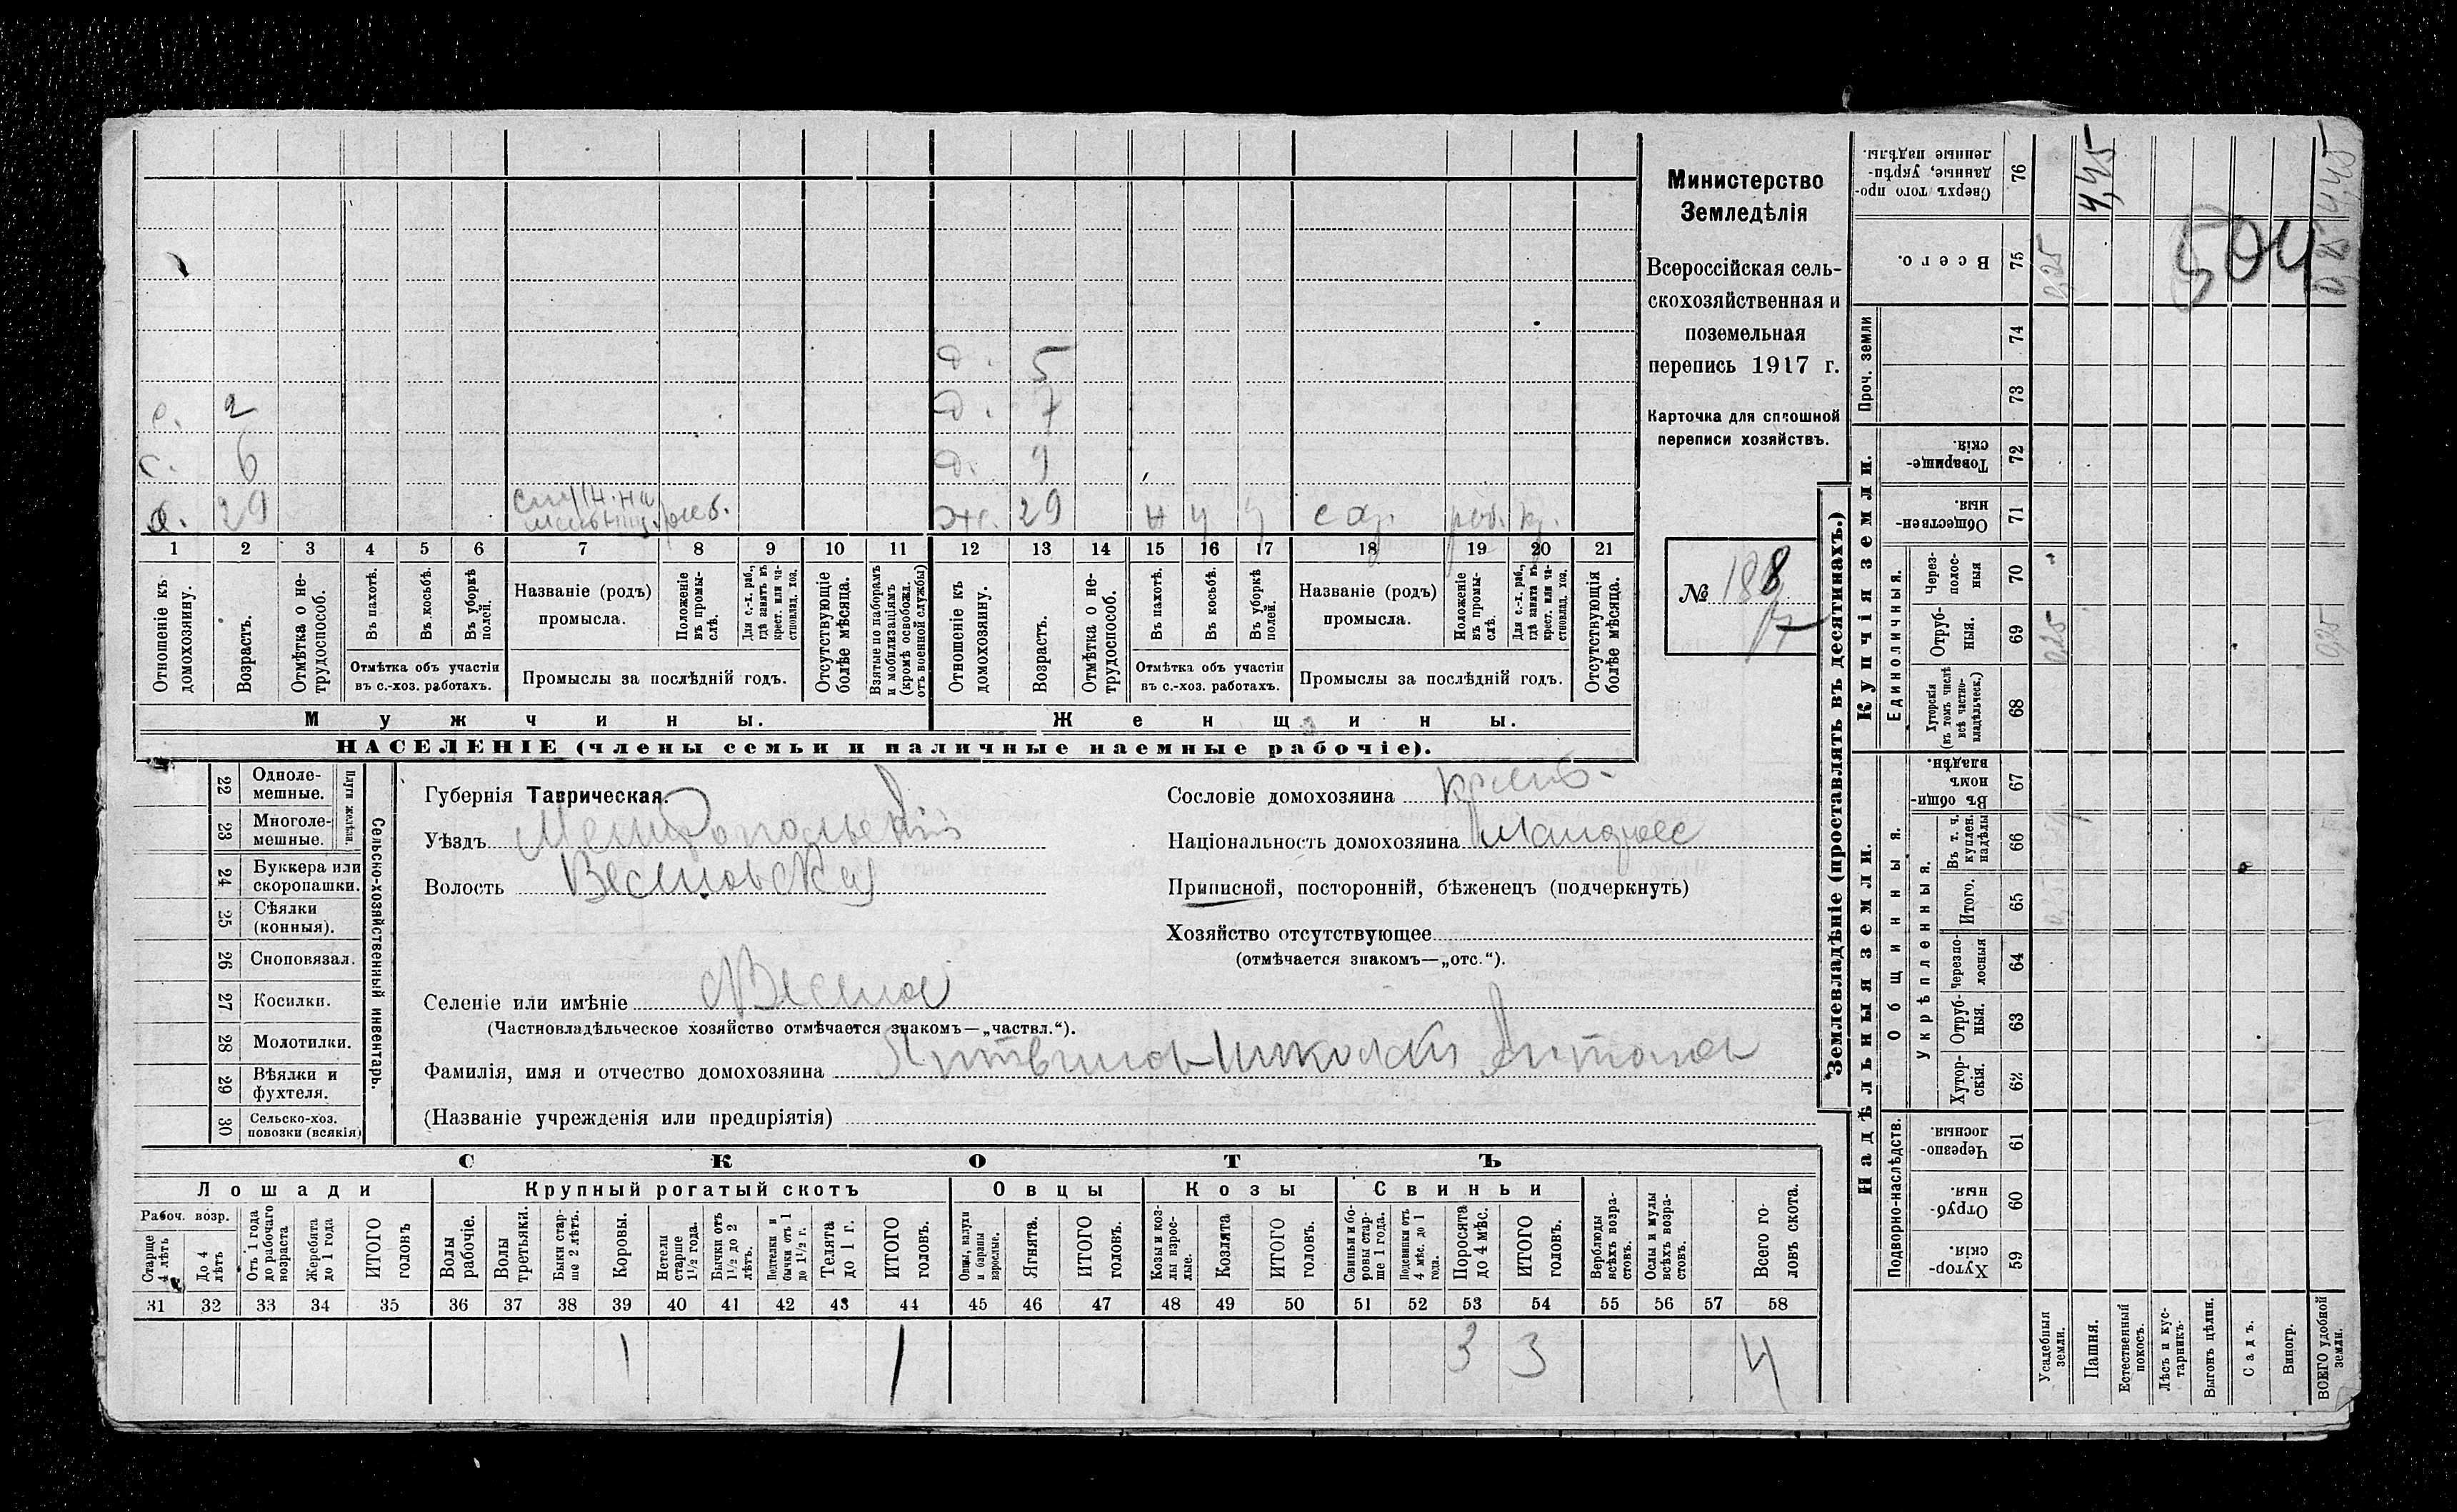 Министерство
Земледѣлія
Всероссійская сель-
скохозяйственная и
поземельная
перепись 1917 г.
Карточка для сплошной
переписи хозяйствъ.
№ 188
17
504
д. 5
с. 2 д. 7
с. 6 д. 9
29 раб. ж. 29
1 2 3 4 5 6 7 8 9 10 11 12 13 14 15 16 17 18 19 20 21
Отношеніе къ домохозяину.
Возрастъ.
Отмѣтка о не-трудоспособ.
Въ пахотѣ.
Въ косьбѣ.
Въ уборкѣ полей.
Отмѣтка объ участіи
въ с.-хоз. работахъ.
Названіе (родъ)
промысла.
Положеніе въ промы-слѣ.
Для с.-х. раб., гдѣ занятъ въ крест. или ча-стновлад. хоз.
Промыслы за послѣдній годъ.
Отсутствующіе болѣе мѣсяца.
Взятые по наборамъ и мобилизаціямъ (кромѣ освобожд. отъ военной службы)
Отношеніе къ домохозяину.
Возрастъ.
Отмѣтка о не-трудоспособ.
Въ пахотѣ.
Въ косьбѣ.
Въ уборкѣ полей.
Отмѣтка объ участіи
въ с.-хоз. работахъ.
Названіе (родъ)
промысла.
Положеніе въ промы-слѣ.
Для с.-х. раб., гдѣ занята въ крест. или ча-стновлад. хоз.
Промыслы за послѣдній годъ.
Отсутствующія болѣе мѣсяца.
Мужчины. Женщины.
НАСЕЛЕНІЕ (члены семьи и наличные наемные рабочіе).
Сельско-хозяйственный инвентарь.
Плуги желѣзн.
22 Одноле-мешные.
23 Многоле-мешные.
24 Буккера или скоропашки.
25 Сѣялки (конныя).
26 Сноповязал.
27 Косилки.
28 Молотилки.
29 Вѣялки и фухтеля.
30 Сельско-хоз. повозки (всякія)
Губернія Таврическая.
Уѣздъ Мелитопольскій
Волость Веселовская
Селеніе или имѣніе
(Частновладѣльческое хозяйство отмѣчается знакомъ—„частвл.“).
Фамилія, имя и отчество домохозяина Литвинов Николай Антонов
(Названіе учрежденія или предпріятія)
Сословіе домохозяина крест.
Національность домохозяина
Приписной, посторонній, бѣженецъ (подчеркнуть)
Хозяйство отсутствующее
(отмѣчается знакомъ—„отс.“).
СКОТЪ
Лошади Крупный рогатый скотъ Овцы Козы Свиньи
Рабоч. возр.
Старше 4 лѣтъ
До 4 лѣтъ
Отъ 1 года до рабочаго возраста
Жеребята до 1 года
ИТОГО головъ
Волы рабочіе.
Волы третьяки.
Быки стар-ше 2 лѣтъ.
Коровы.
Нетели старше 1½ года.
Бычки отъ 1½ до 2 лѣтъ.
Подтелки и бычки отъ 1 до 1½ г.
Телята до 1 г.
ИТОГО головъ.
Овцы, валухи и бараны взрослые.
Ягнята.
ИТОГО головъ.
Козы и коз-лы взрос-лые.
Козлята
ИТОГО головъ.
Свиньи и бо-ровы стар-ше 1 года.
Подсвинки отъ 4 мѣс. до 1 года.
Поросята до 4 мѣс.
ИТОГО головъ.
Верблюды всѣхъ возра-стовъ.
Ослы и мулы всѣхъ возра-стовъ.
Всего го-ловъ скота.
31 32 33 34 35 36 37 38 39 40 41 42 43 44 45 46 47 48 49 50 51 52 53 54 55 56 57 58
1 1 3 3 4
Землевладѣніе (проставлять въ десятинахъ.)
Купчія земли.
Надѣльныя земли.
Сверхъ того про-данные, укрѣп-ленные надѣлы. 76
Всего. 75
Проч. земли 74 73
Товарище-скія. 72
Обществен-ныя. 71
Единоличныя.
Через-полос-ныя 70
Отруб-ныя. 69
Хуторскія (въ томъ числѣ всѣ частно-владѣльческ.) 68
Общинныя.
Въ общи-номъ владѣн. 67
Укрѣпленныя.
Въ т. ч. куплен. надѣлы 66
Итого. 65
Черезпо-лосныя 64
Отруб-ныя. 63
Хутор-скія. 62
Подворно-наслѣдств.
Черезпо-лосныя. 61
Отруб-ныя. 60
Хутор-скія 59
Усадебныя земли.
Пашня.
Естественный покосъ.
Лѣсъ и кус-тарникъ.
Выгонъ цѣлин.
Садъ.
Виногр.
ВСЕГО удобной земли.
4,45
0,25
0,25
0,25